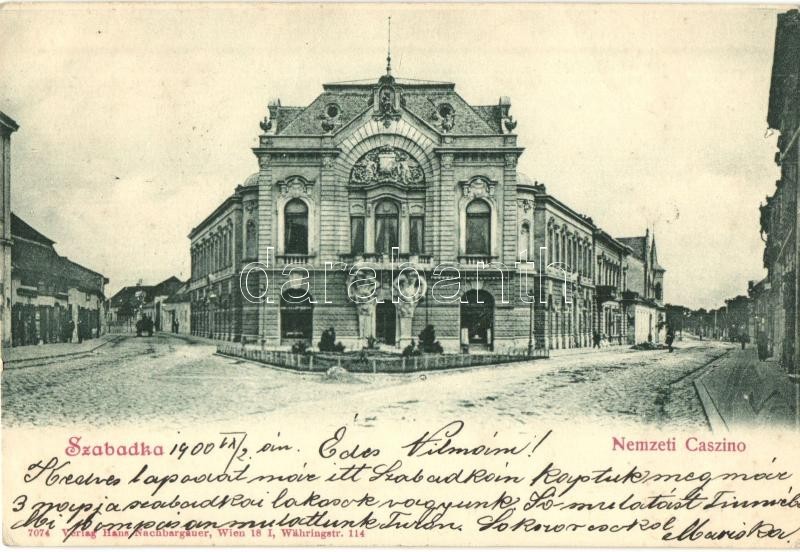 darabanth
Szabadka 1900 VI/2 én. Édes Vilmám! Nemzeti Caszino
Kedves lapodat már itt Szabadkán kaptuk meg már
3 napja szabadkai lakosok vagyunk Jó mulatást
Mi pompásan mulattunk Sokszor csókol Mariska
7074 Verlag Hans Nachbargauer, Wien 18 I, Währingstr. 114